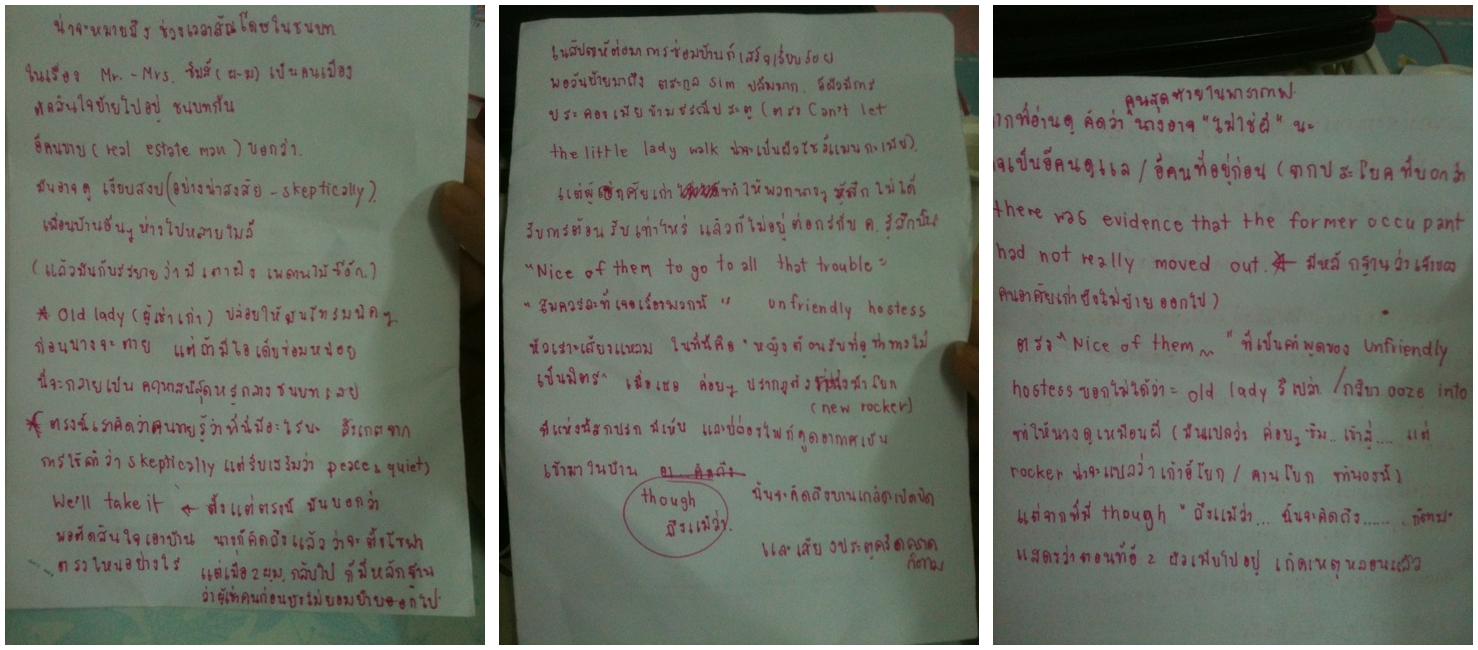 น่าจะหมายถึง ช่วงเวลาสันโดษในชนบท
ในเรื่อง Mr. - Mrs. ซิมส์ (ผ-ม) เป็นคนเมือง
ตัดสินใจย้ายไปอยู่ ชนบทกัน
อีคนขาย (real estate man) บอกว่า.
มันอาจดู เงียบสงบ (อย่างน่าสงสัย - skeptically).
เพื่อนบ้านอื่นๆ ห่างไปหลายไมล์
(แล้วมันก็บรรยายว่ามี เตาผิง เพดานไม้โอ๊ก.)
* Old lady (ผู้เช่าเก่า) ปล่อยให้มันโทรมนิดๆ
ก่อนนางจะตาย แต่ถ้ามีไอเดียซ่อมหน่อย
นี่จะกลายเป็น คฤหาสน์สุดหรูกลาง ชนบทเลย
* ตรงนี้เราคิดว่าคนขายรู้ว่าที่นี่มีอะไรนะ สังเกตจาก
การใช้คำว่า skeptically แต่รีบเสริมว่า peace & quiet)
We'll take it ← ตั้งแต่ตรงนี้ มันบอกว่า
พอตัดสินใจเอาบ้าน นางก็คิดถึงแล้วว่าจะ ตั้งโซฟา
ตรงไหนอย่างไร แต่เมื่อ 2 ผม. กลับไป ก็มีหลักฐาน
ว่าผู้เช่าคนก่อนยังไม่ยอมย้ายออกไป
ในสัปดาห์ต่อมาการซ่อมบ้านก็เสร็จเรียบร้อย
พอวันย้ายมาถึง ตระกูล Sim ปลื้มมาก. อีผัวมีการ
ประคองเมียข้ามธรณีประตู (ตรง Can't let
the little lady walk น่าจะเป็นผัวโชว์แมนกะเมีย).
แต่ผู้อาศัยเก่า ทำให้พวกนางๆ รู้สึกไม่ได้
รับการต้อนรับเท่าไหร่ แล้วก็ไม่อยู่ต่อกรกับ ค. รู้สึกนั้น
"Nice of them to go to all that trouble =
" สมควรละที่เจอเรื่องพวกนี้ " unfriendly hostess
หัวเราะเสียงแหลม ในที่นี้คือ "หญิงต้อนรับที่ดูท่าทางไม่
เป็นมิตร" เมื่อเธอ ค่อยๆ ปรากฏตัว เก้าโยก
(new rocker)
ที่แห่งนี้สกปรก มีเห็บ และปล่องไฟก็ดูดอากาศเย็น
เข้ามาในบ้าน
though ฉันจะคิดถึงบานเกล็ดเปิดปิด
ถึงแม้ว่า.
และเสียงประตูครืดคราด
ก็ตาม
คนสุดท้ายในพารากราฟ
จากที่อ่านดู คิดว่า "นางอาจ "ไม่ใช่ผี" นะ
อาจเป็นอีคนดูแล / อีคนที่อยู่ก่อน (จากประโยคที่บอกว่า
there was evidence that the former occupant
had not really moved out. * มีหลักฐานว่าเจ้าของ
คนอาศัยเก่ายังไม่ย้ายออกไป)
ตรง "Nice of them ~ " ที่เป็นคำพูดของ unfriendly
hostess บอกไม่ได้ว่า = old lady รึเปล่า / กริยา ooze into
ทำให้นางดูเหมือนผี (มันแปลว่า ค่อยๆ ซึม.. เข้าสู่.... แต่
rocker น่าจะแปลว่า เก้าอี้โยก / คานโยก ทำนองนี้)
แต่จากที่มี though " ถึงแม้ว่า... ฉันจะคิดถึง....... ก็ตาม"
แสดงว่าตอนที่อี 2 ผัวเมียไปอยู่ เกิดเหตุหลอนแล้ว